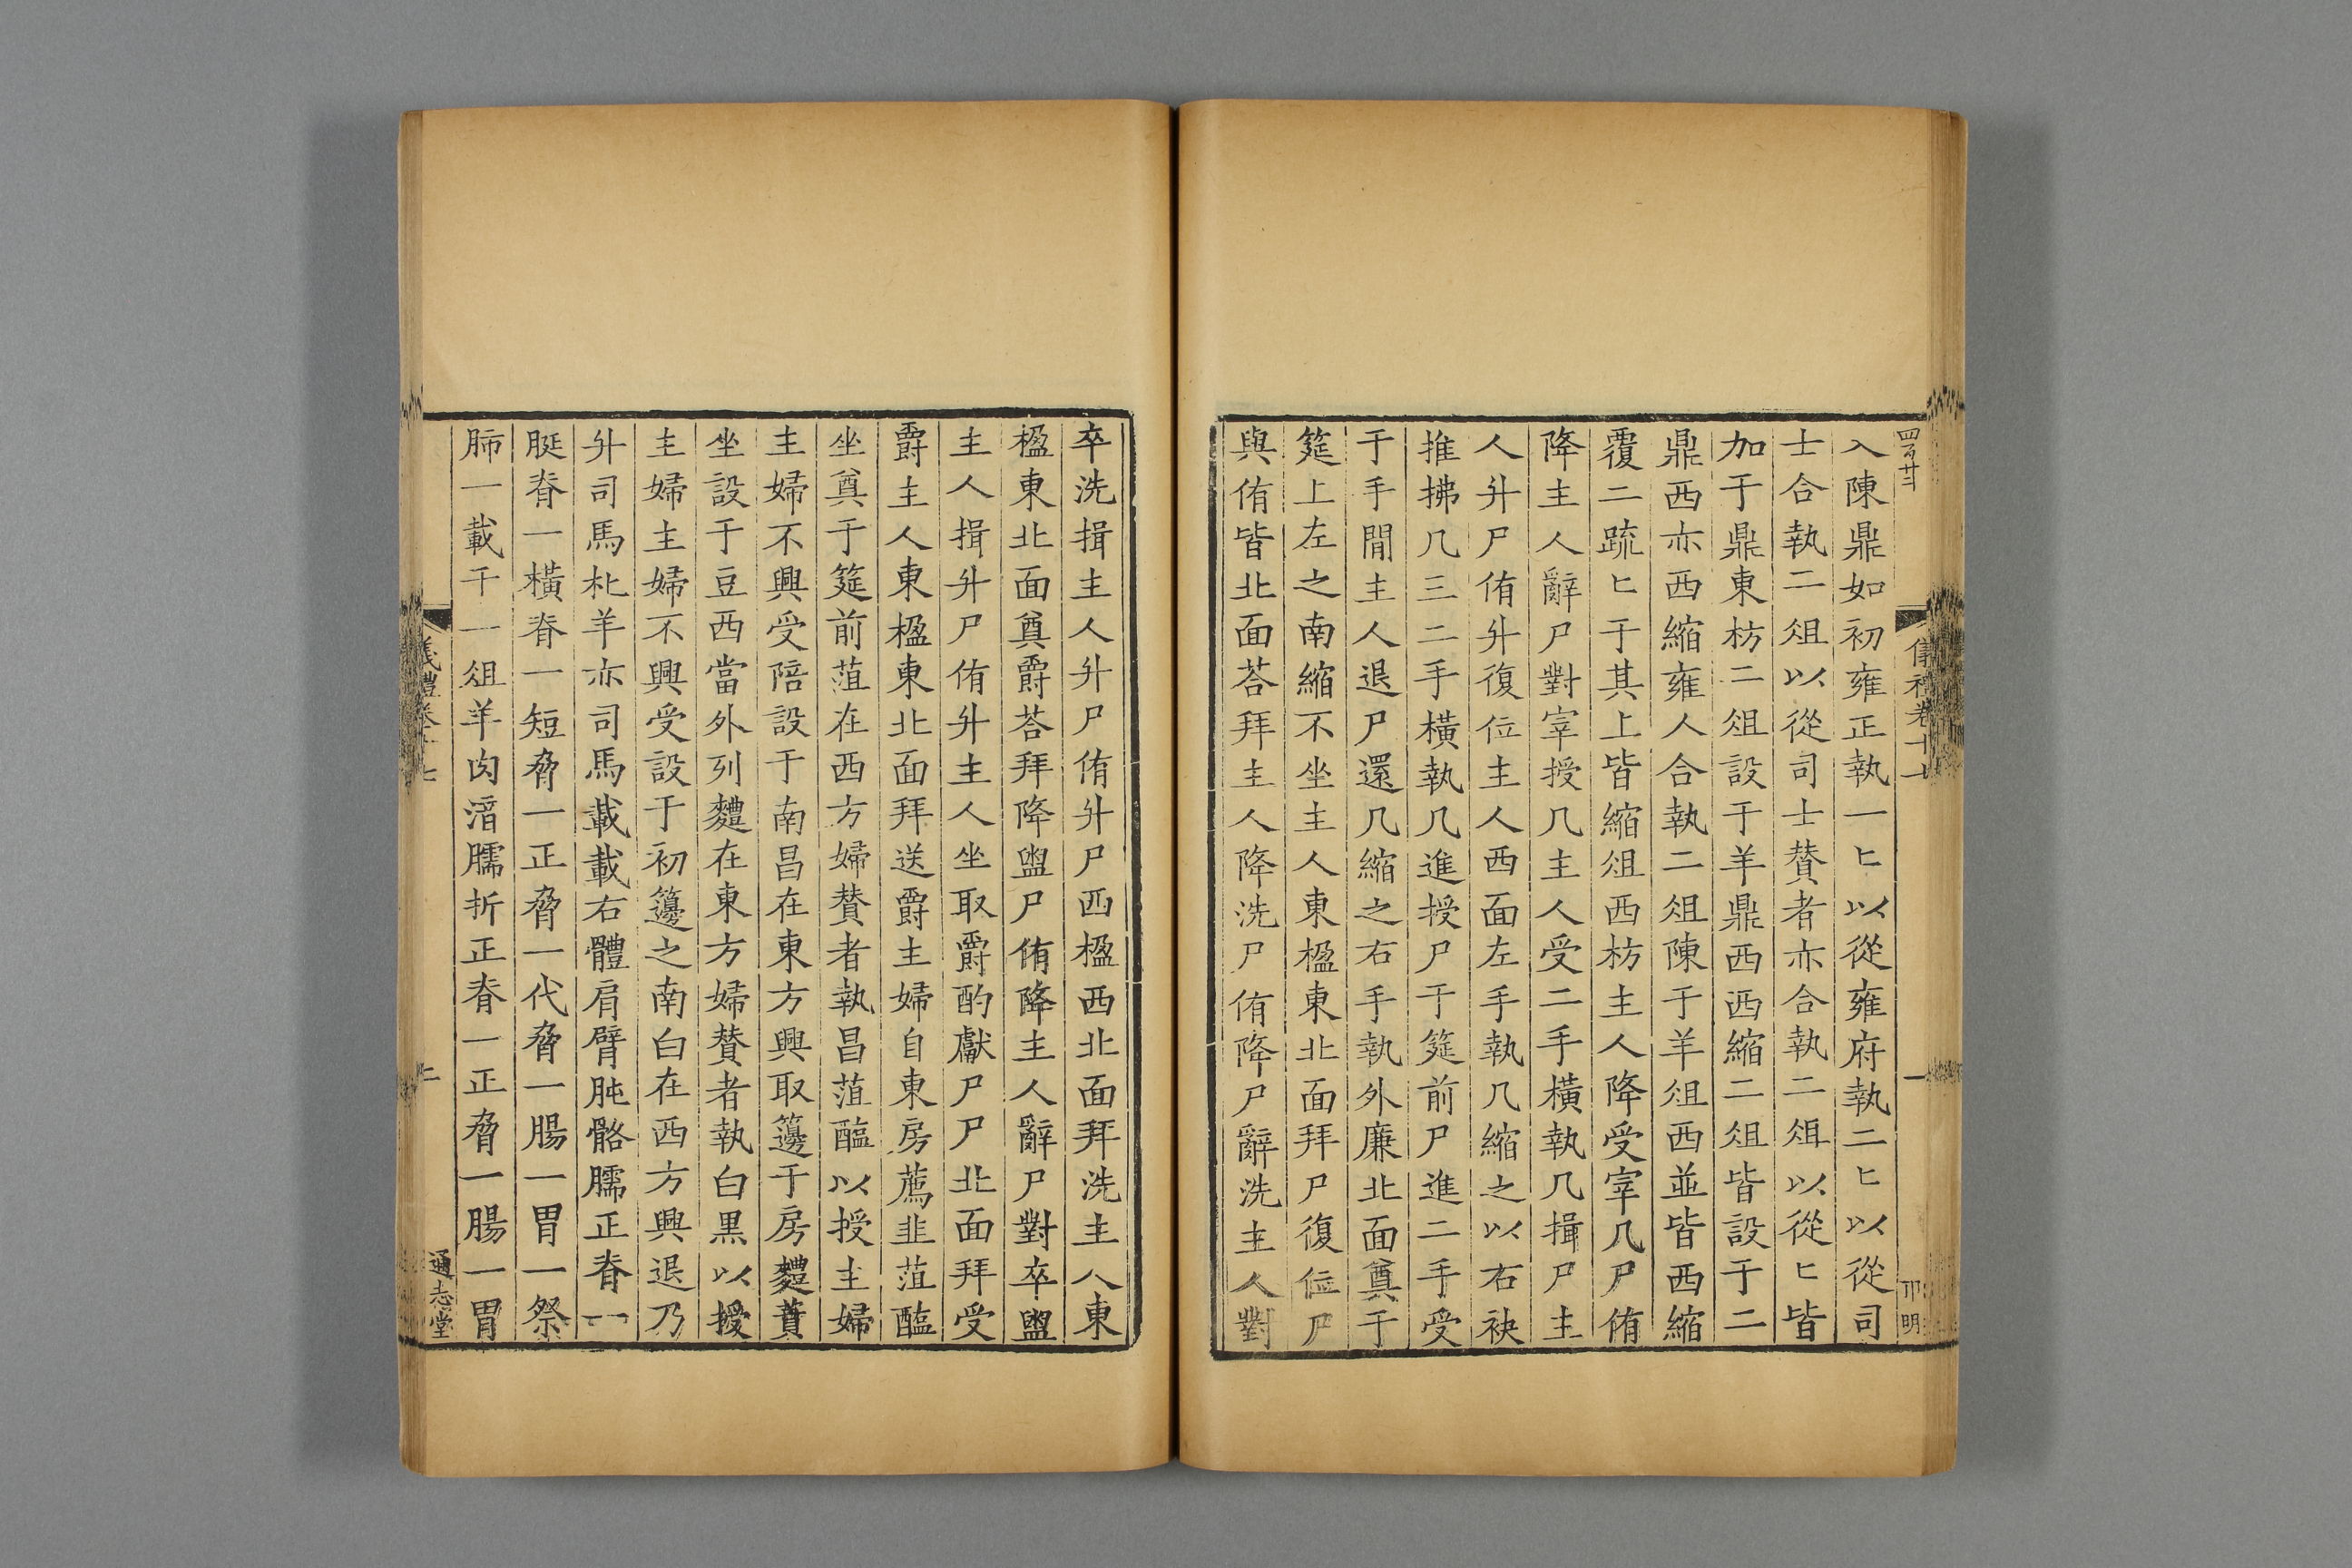 入陳鼎如初雍正執一匕以從雍府執二匕以從司
士合執二俎以從司士賛者亦合執二俎以從匕皆
加于鼎東枋二俎設于羊鼎西西縮二俎皆設于二
鼎西亦西縮雍人合執二俎陳于羊俎西並皆西縮
覆二疏匕于其上皆縮俎西枋主人降受宰几尸侑
降主人辭尸對宰授几主人受二手橫執几揖尸主
人升尸侑升復位主人西面左手執几縮之以右袂
推拂几三二手橫執几進授尸于筵前尸進二手受
于手閒主人退尸還几縮之右手執外廉北面奠于
筵上左之南縮不坐主人東楹東北面拜尸復位尸
與侑皆北面荅拜主人降洗尸侑降尸辭洗主人對
卒洗揖主人升尸侑升尸西楹西北面拜洗主人東
楹東北面奠爵荅拜降盥尸侑降主人辭尸對卒盥
主人揖升尸侑升主人坐取爵酌獻尸尸北面拜受
爵主人東楹東北面拜送爵主婦自東房薦韭菹醢
坐奠于筵前菹在西方婦賛者執昌菹醢以授主婦
主婦不興受陪設于南昌在東方興取籩于房麷蕡
坐設于豆西當外列麷在東方婦賛者執白黑以授
主婦主婦不興受設于初籩之南白在西方興退乃
升司馬朼羊亦司馬載載右體肩臂肫骼臑正脊一
脡脊一橫脊一短脅一正脅一代脅一腸一胃一祭
肺一載于一俎羊肉湆臑折正脊一正脅一腸一胃
儀禮卷十七
通志堂